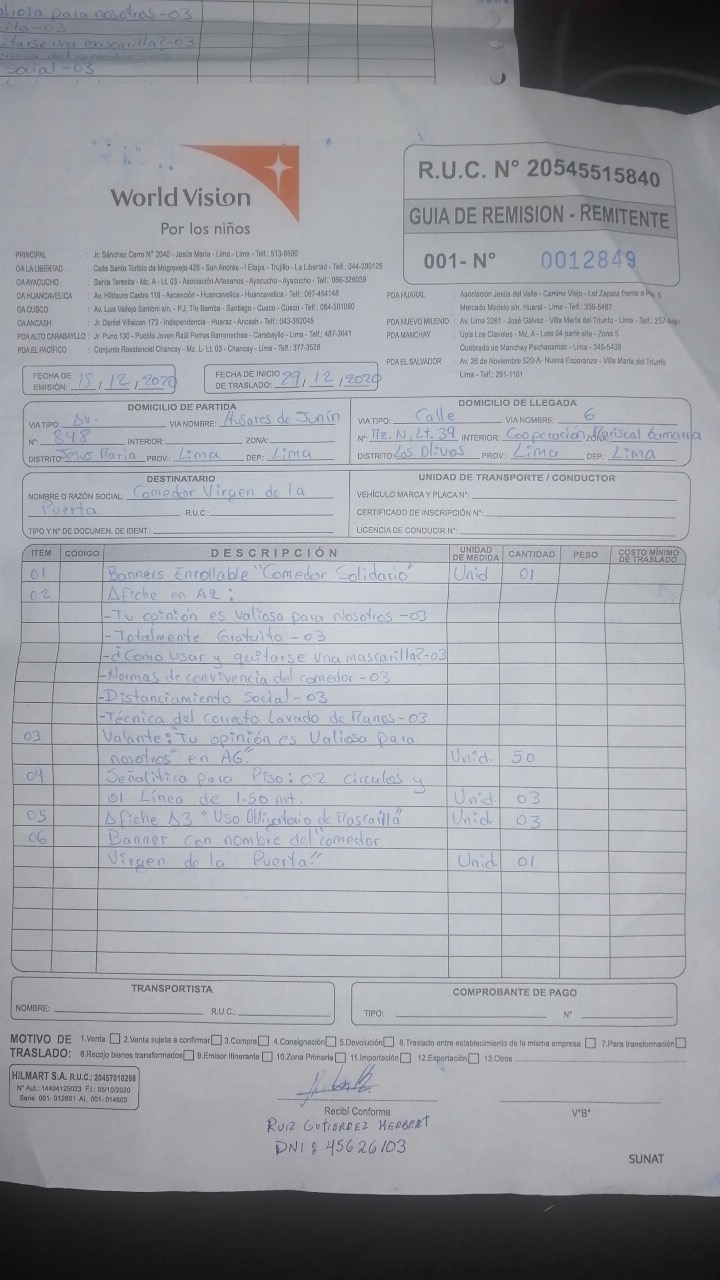 aliosa para nosotros-03
ito-03
itarse una mascarilla?-03
social-03
World Vision
Por los niños
R.U.C. N° 20545515840
GUIA DE REMISION - REMITENTE
001- N° 0012849
PRINCIPAL : Jr. Sánchez Cerro N° 2040 - Jesús María - Lima - Lima - Telf.: 513-5600
OA LA LIBERTAD : Calle Santo Toribio de Mogrovejo 426 - San Andrés - I Etapa - Trujillo - La Libertad - Telf.: 044-290125
OA AYACUCHO : Santa Teresita - Mz. A - Lt. 03 - Asociación Artesanos - Ayacucho - Ayacucho - Telf.: 066-326038
OA HUANCAVELICA : Av. Hildauro Castro 118 - Ascención - Huancavelica - Huancavelica - Telf.: 067-454148
OA CUSCO : Av. Luis Vallejo Santoni s/n. - P.J. Tío Bamba - Santiago - Cusco - Cusco - Telf.: 084-581090
OA ANCASH : Jr. Daniel Villaizan 173 - Independencia - Huaraz - Ancash - Telf.: 043-392045
PDA ALTO CARABAYLLO : Jr. Puno 130 - Pueblo Joven Raúl Porras Barrenechea - Carabayllo - Lima - Telf.: 487-3641
OA EL PACÍFICO : Conjunto Residencial Chancay - Mz. L- Lt. 03 - Chancay - Lima - Telf.: 377-3528
PDA HUARAL : Asociación Jesús del Valle - Camino Viejo - Lot Zapata frente a
Mercado Modelo s/n. Huaral - Lima - Telf.: 339-5487
PDA NUEVO MILENIO : Av. Lima 2261 - José Gálvez - Villa María del Triunfo - Lima - Telf.:
PDA MANCHAY : Upis Los Claveles - Mz. A - Lote 04 parte alta - Zona 5
Quebrada de Manchay Pachacamac - Lima - 345-5438
PDA EL SALVADOR : Av. 26 de Noviembre 520-A- Nueva Esperanza - Villa María del Triunfo
Lima - Telf.: 291-1101
FECHA DE EMISIÓN: 15, 12, 2020
FECHA DE INICIO DE TRASLADO: 29, 12, 2020
DOMICILIO DE PARTIDA
VIA TIPO: Av. VIA NOMBRE: Husares de Junín
N°: 848 INTERIOR: ZONA:
DISTRITO: Jesus Maria PROV.: Lima DEP.: Lima
DOMICILIO DE LLEGADA
VIA TIPO: Calle VIA NOMBRE: 6
N°: Mz. N, Lt. 39 INTERIOR: Cooperación Mariscal Gamarra
DISTRITO: Los Olivos PROV.: Lima DEP.: Lima
DESTINATARIO
NOMBRE O RAZÓN SOCIAL: Comedor Virgen de la
Puerta R.U.C.:
TIPO Y N° DE DOCUMEN. DE IDENT.:
UNIDAD DE TRANSPORTE / CONDUCTOR
VEHÍCULO MARCA Y PLACA N°:
CERTIFICADO DE INSCRIPCIÓN N°:
LICENCIA DE CONDUCIR N°:
ITEM CÓDIGO DESCRIPCIÓN UNIDAD DE MEDIDA CANTIDAD PESO COSTO MÍNIMO DE TRASLADO
01 Banners Enrollable "Comedor Solidario" Unid 01
02 Afiche en A2:
-Tu opinión es Valiosa para Nosotros -03
-Totalmente Gratuito - 03
-¿Como usar y quitarse una mascarilla?-03
-Normas de convivencia del comedor - 03
-Distanciamiento Social - 03
-Técnica del correcto Lavado de Manos-03
03 Valante: "Tu opinión es Valiosa para
nosotros" en A6." Unid. 50
04 Señalitica para Piso: 02 circulos y
01 Línea de 1.50 mt. Unid 03
05 Afiche A3 "Uso Obligatorio de Mascarilla" Unid 03
06 Banner con nombre del "comedor
Virgen de la Puerta" Unid 01
TRANSPORTISTA
NOMBRE: R.U.C.:
COMPROBANTE DE PAGO
TIPO: N°
MOTIVO DE TRASLADO: 1.Venta 2.Venta sujeta a confirmar 3.Compra 4.Consignación 5.Devolución 6.Traslado entre establecimiento de la misma empresa 7.Para transformación
8.Recojo bienes transformados 9.Emisor Itinerante 10.Zona Primaria 11.Importación 12.Exportación 13.Otros
HILMART S.A. R.U.C.: 20457010266
N° Aut.: 14404125023 F.I.: 05/10/2020
Serie 001- 012601 AL 001- 014600
Recibí Conforme
V°B°
RUIZ GUTIERREZ HERBERT
DNI: 45626103
SUNAT